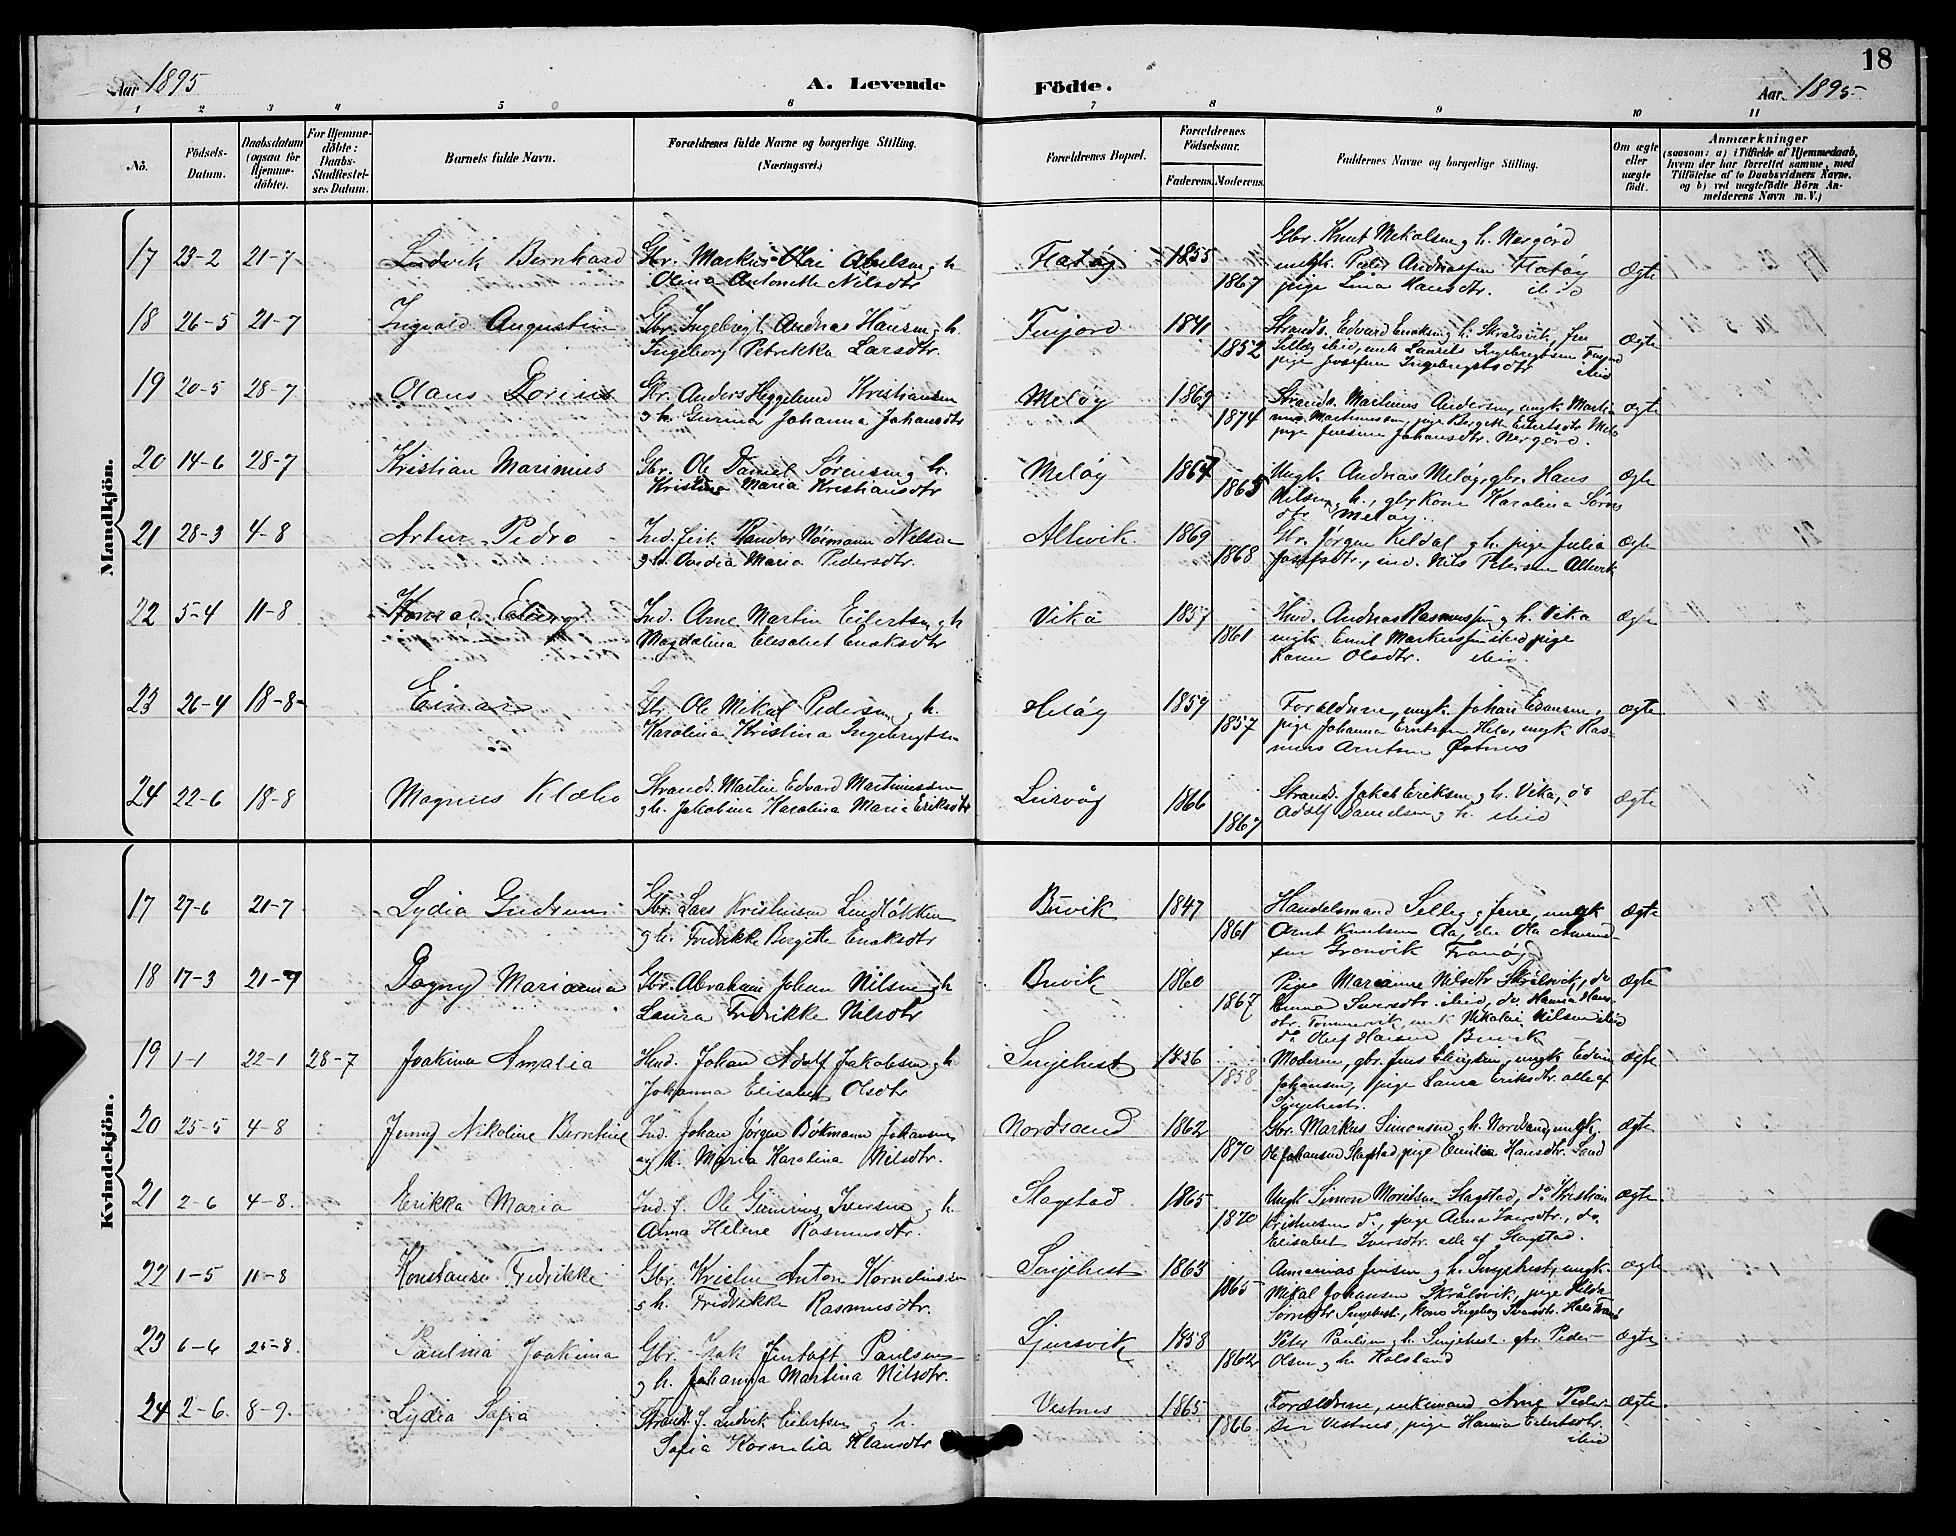 18
Aar 1895
A. Levende Födte.
Aar. 1895
1 2 3 4 5 6 7 8 9 10 11
Nö.
Födsels-
Datum.
Daabsdatum
(ogsaa for
Hjemme-
döbte).
For Hjemme-
döbte:
Daabs-
Stadfæstel-
ses Datum.
Barnets fulde Navn.
Forældrenes fulde Navne og borgerlige Stilling.
(Næringsvei.)
Forældrenes Bopæl.
Forældrenes
Födselsaar.
Faderens. Moderens.
Faddernes Navne og borgerlige Stilling.
Om ægte
eller
uægte
födt.
Anmærkninger
(saasom: a) i Tilfælde af Hjemmedaab,
hvem der har forrettet samme, med
Tilföielse af to Daabsvidners Navne.
og b) ved uægtefödte Börn An-
melderens Navn m. V.)
Mandkjön.
17 23-2 21-7 Ludvik Bernhard Gbr. Markus Olai Abelsen g h
Olina Antonette Nilsdtr
Flatøy 1855 1867
Gbr. Knut Mekalsen g h. Nergörd
ungk. Peder Andreassen Flatøy
pige Lina Hansdtr. ibid
Ægte
18 26-5 21-7 Ingvald Augustin Gbr. Ingebrigt Andreas Hansen g h.
Ingeborg Petrikka Larsdtr.
Finjord 1841 1852
Strands. Edvard Enoksen g h. Skrålsvik, fru
Selleg ibid, ungk Laurits Ingebrigtsen Finjord
pige Josefine Ingebrigtsdtr ibid
Ægte
19 20-5 28-7 Olaus Dorius Gbr. Anders Heggelund Kristiansen
g h. Gurina Johanna Johansdtr
Meløy 1869 1874
Strands. Martinus Andersen, ungk. Marti
nus Martinussen, pige Bergitte Eilertsdtr Melø
pige Jensine Johansdtr. Nergörd.
Ægte
20 14-6 28-7 Kristian Marinius Gbr. Ole Daniel Sørensen g h.
Kristina Maria Kristiansdtr
Meløy 1867 1865
Ungk. Andreas Meløy, gbr. Hans
Nilsen g h., gbr Kone Karolina Sørens
dtr Meløy.
Ægte
21 28-3 4-8 Artur Pedro Ind. fisk. Rander Normann Nilsen
g h. Ovedia Maria Pedersdtr.
Allevik 1869 1868
Gbr. Jørgen Kildal g h. pige Julia
Josefsdtr., ind. Nils Petersen Allevik
Ægte
22 5-4 11-8 Konrad Eling Ind. Arne Martin Eilertsen g h
Magdalina Elisabet Enoksdtr
Vika 1857 1861
Husd. Andreas Rasmussen g h. Vika
ungk. Emil Markussen ibid pige
Karen Olsdtr. ibid.
Ægte
23 26-4 18-8 Einar Gbr. Ole Mikal Pedersen g h.
Karolina Kristina Ingebrigtsen
Meløy 1859 1857
Forældrene, ungk. Johan Evensen,
pige Johanna Erntsen Melø, ungk Ras-
mus Arntsen Østnes
Ægte
24 22-6 18-8 Magnus Klæbo Strands. Martin Edvard Martinussen
g h. Jakobina Karolina Maria Eriksdtr
Lurvåg 1866 1867
Strands. Jakob Eriksen g h. Vika, do
Adolf Danielsen g h. ibid
Ægte
Kvindekjön.
17 27-6 21-7 Lydia Gudrun Gbr. Lars Kristensen Lundløkken
g h. Fredrikke Bergitte Enoksdtr
Buvik 1847 1861
Handelsmand Selleg g frue, ungk
Arnt Knutsen do, do Ola Amund-
sen Grønvik
Ægte
18 17-3 21-7 Dagny Marianna Gbr. Abraham Johan Nilsen g h
Laura Fredrikke Nilsdtr
Buvik 1860 1867
Pige Marianne Nilsdtr Skrålsvik, do
Emma Siversdtr. ibid, do. Hanna Hans
dtr. Tommervik, ungk Nikolai Nilsen ibid
do Oluf Hansen Buvik
Ægte
19 1-1 22-1 28-7 Joakima Amalia Husd. Johan Adolf Jakobsen g h
Johanna Elisabet Olsdtr
Sinjehest 1856 1858
Moderen, gbr. Jens Elingsen, ungk Edvin
Johansen, pige Laura Eriksdtr. alle af
Sinjehest.
Ægte
20 25-5 4-8 Jenny Nikoline Berntine Ind. Johan Jörgen Bökmann Johansen
og h. Maria Karolina Nilsdtr.
Nordsand 1862 1870
Gbr. Markus Simonsen g h. Nordsand, ungk
Ole Johansen Slagstad, pige Emilia Hansdtr. Sand
Ægte
21 2-6 4-8 Erikka Maria Ind. f. Ole Gunerius Iversen g h.
Anna Helene Rasmusdtr.
Slagstad 1865 1870
Ungk Simon Moritsen Slagstad, do Kristian
Kristensen do., pige Anna Iversdtr., do.
Elisabet Iversdtr. alle af Slagstad.
Ægte
22 1-5 11-8 Konstanse Fredrikke Gbr. Kristen Anton Korneliussen
g h. Fredrikke Rasmusdtr.
Sinjehest 1863 1865
Ananias Jensen g h. Sinjehest, ungk.
Mikal Johansen Skrålsvik, pige Hilda
Sørensdtr Sinjehest, Kone Ingeborg
Ægte
23 6-6 25-8 Paulina Joakima Gbr. Isak Jentoft Paulsen
g h. Johanna Martina Nilsdtr.
Ljusvik 1858 1862
Peter Paulsen g h. Sinjehest gbr. Peder
Olsen g h. Kalsland
Ægte
24 2-6 8-9 Lydia Sofia Strands. f. Ludvik Eilertsen g h.
Sofia Kornelia Klausdtr
Vestnes 1865 1866
Forældrene, enkemand Arne Peder-
sen Vestnes, pige Hanna Eilertsdtr.
ibid
Ægte